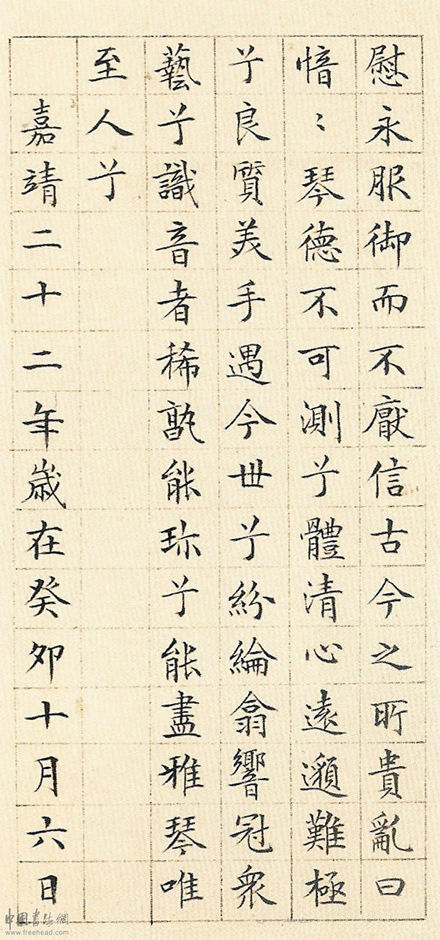 慰永服御而不厭信古今之所貴亂曰
愔〻琴德不可測兮體清心遠邈難極
兮良質美手遇今世兮紛綸翕響冠衆
藝兮識音者稀孰能珎兮能盡雅琴唯
至人兮
嘉靖二十二年歲在癸卯十月六日
中国书法網
www.freehead.com